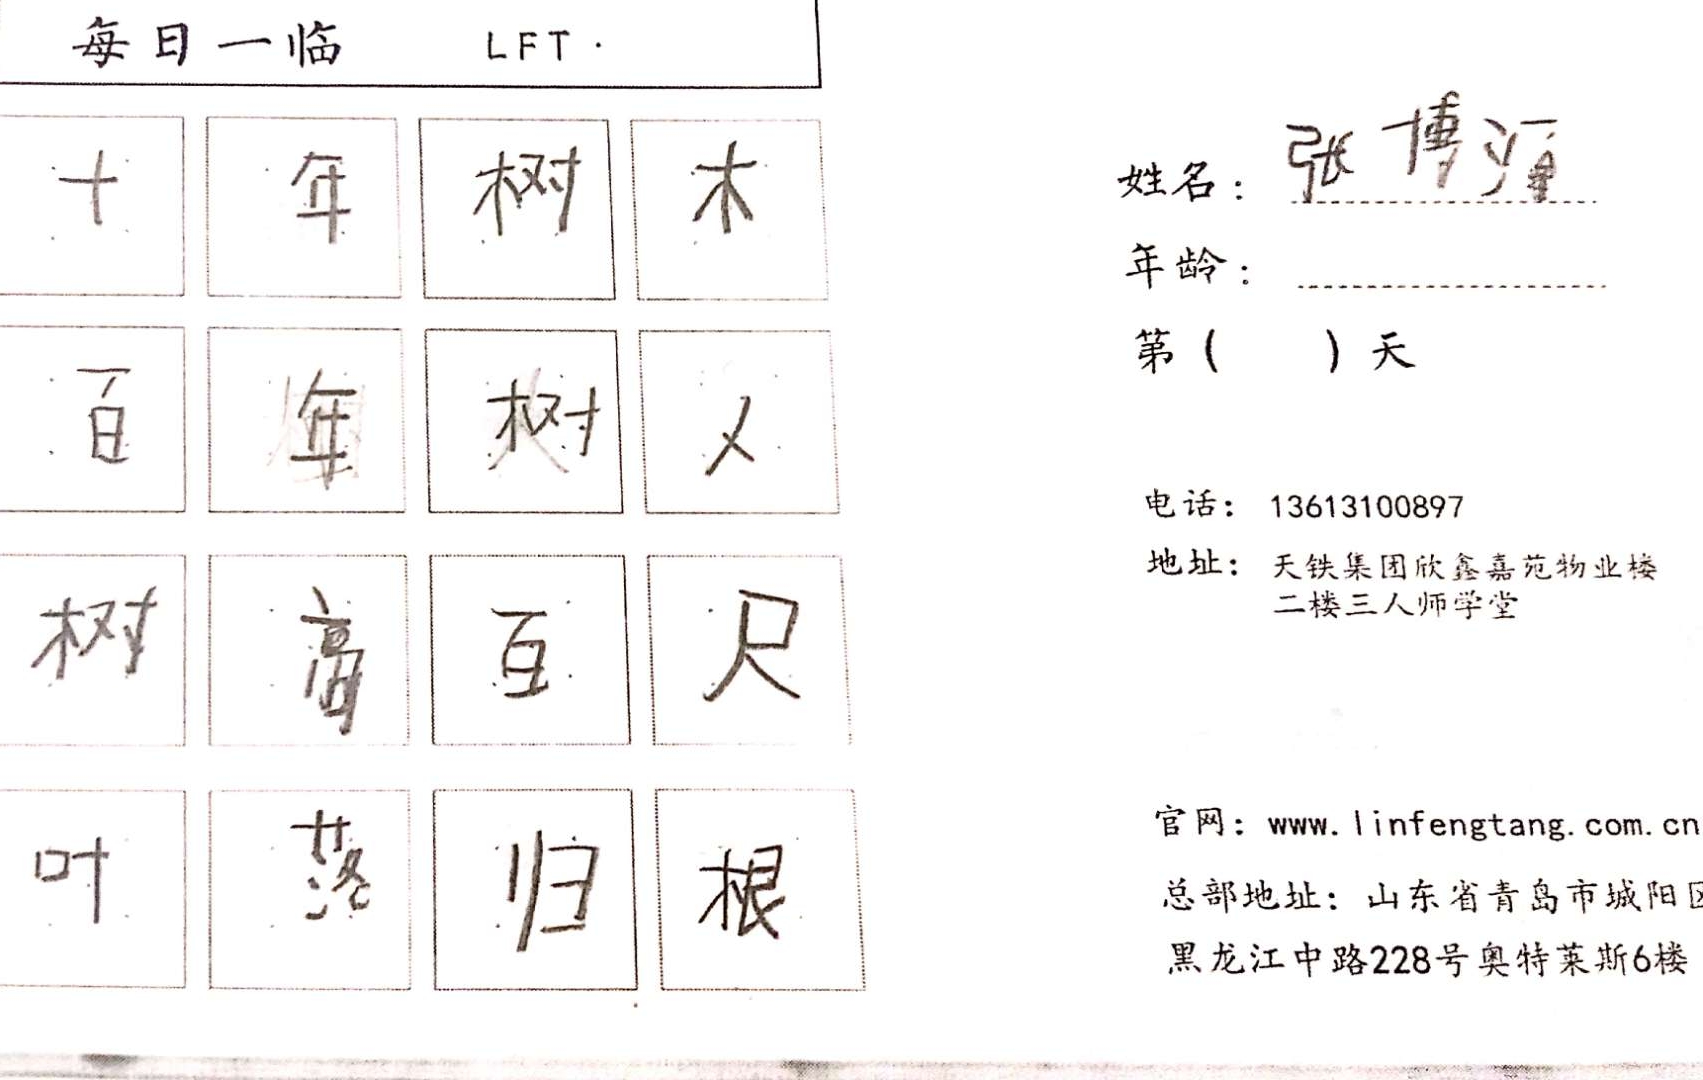 每日一临 LFT·
十年树木
百年树人
树高百尺
叶落归根
姓名：张博源
年龄：
第（ ）天
电话：13613100897
地址：天铁集团欣鑫嘉苑物业楼
二楼三人师学堂
官网：www.linfengtang.com.cn
总部地址：山东省青岛市城阳区
黑龙江中路228号奥特莱斯6楼